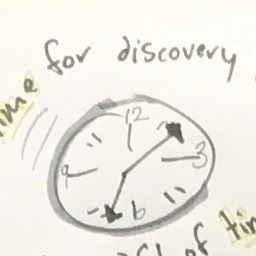 time for discovery
12
9 3
6
of tin